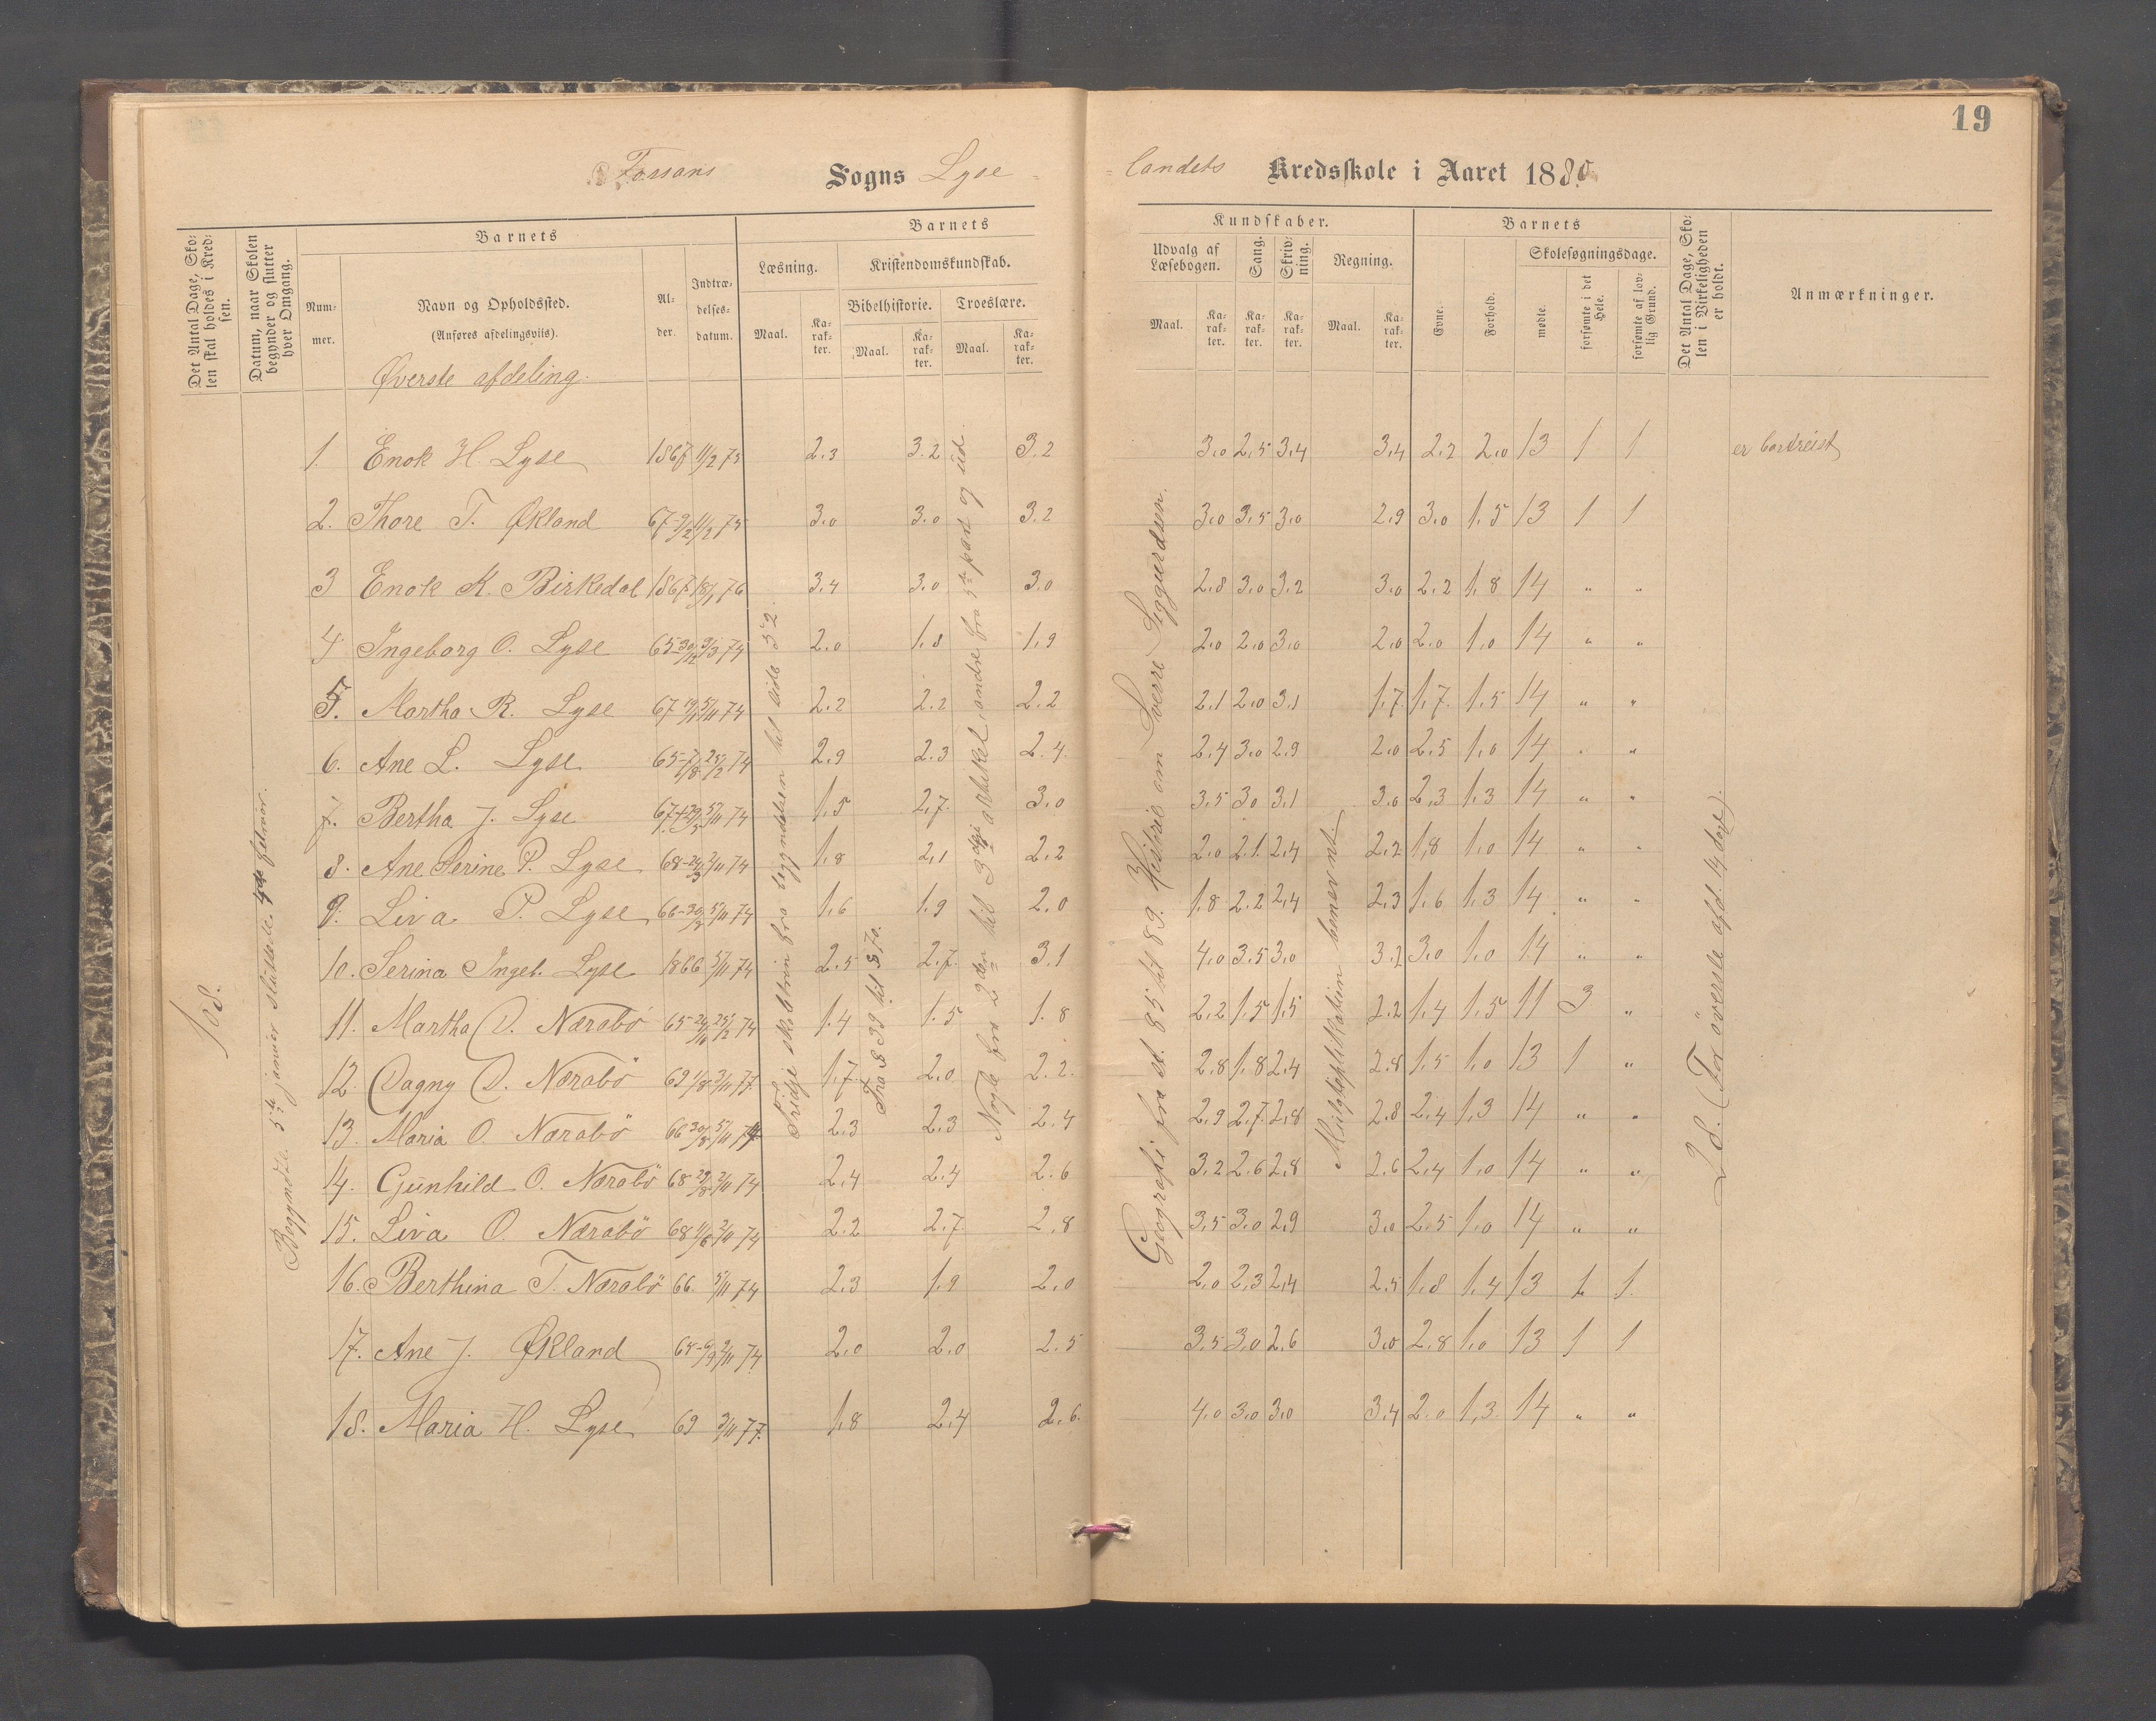 19
Fossans Sogns Lyse = = landets Kredsskole i Aaret 1880.
Det Antal Dage, Skolen skal holdes i Kredsen.
Datum, naar Skolen begynder og slutter hver Omgang.
Barnets
Nummer.
Navn og Opholdssted.
(Anføres afdelingsviis).
Alder.
Indtrædelsesdatum.
Barnets
Læsning.
Maal.
Karakter.
Kristendomskundskab.
Bibelhistorie.
Maal.
Karakter.
Troeslære.
Maal.
Karakter.
Kundskaber.
Udvalg af Læsebogen.
Maal.
Karakter.
Sang.
Karakter.
Skrivning.
Karakter.
Regning.
Maal.
Karakter.
Barnets
Evne.
Forhold.
Skolesøgningsdage.
mødte.
forsømte i det Hele.
forsømte af lovlig Grund.
Det Antal Dage, Skolen i Virkeligheden er holdt.
Anmærkninger.
Øverste afdeling.
1. Enok H. Lyse 1867 11/2 75 2.3 3.2 3.2 3.0 2.5 3.4 3.4 2.2 2.0 13 1 1 er bortreist
2. Thore T. Økland 67-9/2 11/2 75 3.0 3.0 3.2 3.0 3.5 3.0 2.9 3.0 1.5 13 1 1
3 Enok K. Birkedal 1867 18/1 76 3.4 3.0 3.0 2.8 3.0 3.2 3.0 2.2 1.8 14 " "
4. Ingeborg O. Lyse 65-30/12 3/3 74 2.0 1.8 1.9 2.0 2.0 3.0 2.0 2.0 1.0 14 " "
5. Martha R. Lyse 67 5/11 74 2.2 2.2 2.2 2.1 2.0 3.1 1.7 1.7 1.5 14 " "
6. Ane L. Lyse 65-7/8 25/2 74 2.9 2.3 2.4 2.4 3.0 2.9 2.0 2.5 1.0 14 " "
7. Bertha J. Lyse 67 5/11 74 1.5 2.7 3.0 3.5 3.0 3.1 3.0 2.3 1.3 14 " "
8. Ane Serine P. Lyse 68 2/11 74 1.8 2.1 2.2 2.0 2.1 2.4 2.2 1.8 1.0 14 " "
9. Liva P. Lyse 66 5/11 74 1.6 1.9 2.0 1.8 2.2 2.4 2.3 1.6 1.3 14 " "
10. Serina Ingeb. Lyse 1866 5/11 74 2.5 2.7 3.1 4.0 3.5 3.0 3.2 3.0 1.0 14 " "
11. Martha D. Nærabö 65 25/2 74 1.4 1.5 1.8 2.2 1.5 1.5 2.2 1.4 1.5 11 3 "
12. Dagny D. Nærabö 69 3/11 77 1.7 2.0 2.2 2.8 1.8 2.4 2.8 1.5 1.0 13 1 "
13. Maria O. Nærabö 66 30/8 5/11 74 2.3 2.3 2.4 2.9 2.7 2.8 2.8 2.4 1.3 14 " "
14. Gunhild O. Nærabö 68 29/8 2/11 74 2.4 2.4 2.6 3.2 2.6 2.8 2.6 2.4 1.0 14 " "
15. Liva O. Nærabö 68 2/11 74 2.2 2.7 2.8 3.5 3.0 2.9 3.0 2.5 1.0 14 " "
16. Berthina T. Nærabö 66. 5/11 74 2.3 1.9 2.0 2.0 2.3 2.4 2.5 1.8 1.4 13 1 1
17. Ane J. Økland 2/11 74 2.0 2.0 2.5 3.5 3.0 2.6 3.0 2.8 1.0 13 1 1
18. Maria H. Lyse 69 3/11 77. 1.8 2.4 2.6. 4.0 3.0 3.0 3.4 2.0 1.3 14 " "
10d.
Begyndte 5te januar sluttede februar.
Tridje skoletrin fra begyndelsen til side 52.
Fra § 39 til § 70.
Nogle fra 2den til 3die artikel, andre fra 5te part og ud.
Geografi fra st. 85 til 89. Histrie om Sverre Siggurdsen.
Multiplikation benævnt
2d. (For överste afd. 14 dag).